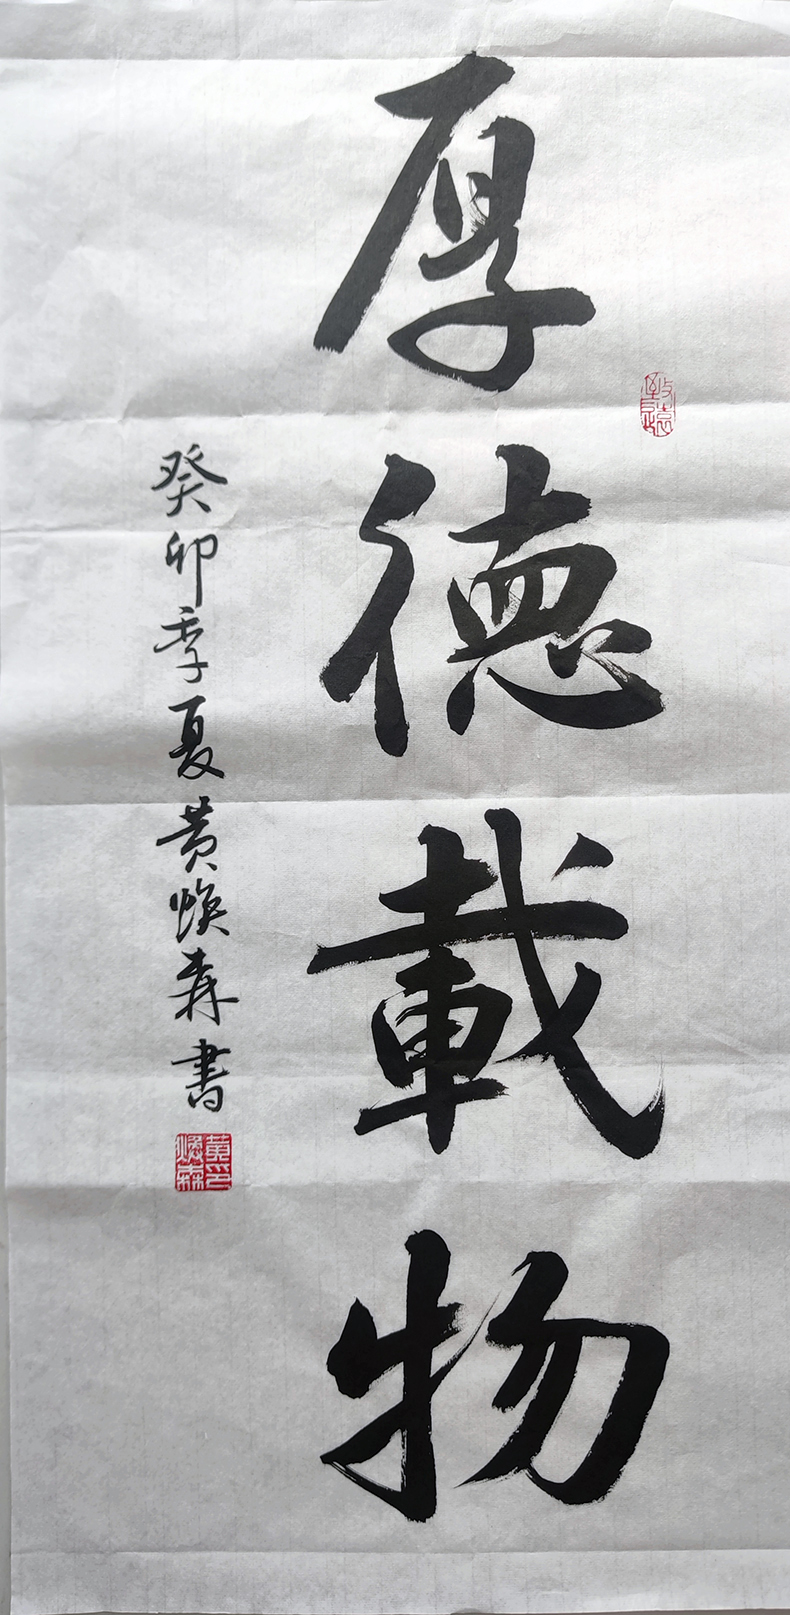 厚德載物
癸卯季夏黄焕森書